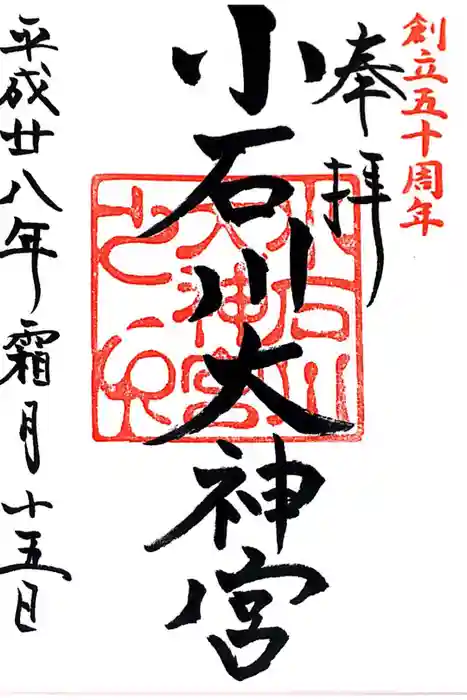 創立五十周年
奉拝
小石川大神宮
小石川
大神宮
之印
平成廿八年霜月十五日